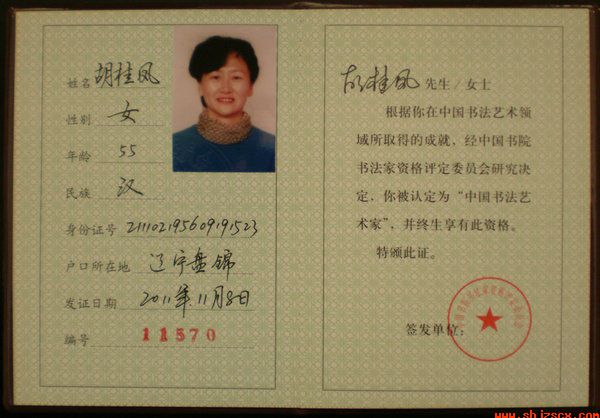 姓名 胡桂凤
性别 女
年龄 55
民族 汉
身份证号 211102195609191523
户口所在地 辽宁盘锦
发证日期 2011年.11月8日
编号 11570
胡桂凤 先生/女士
根据你在中国书法艺术领
域所取得的成就，经中国书院
书法家资格评定委员会研究决
定，你被认定为“中国书法艺
术家”，并终生享有此资格。
特颁此证。
签发单位：
www.shjzscx.com